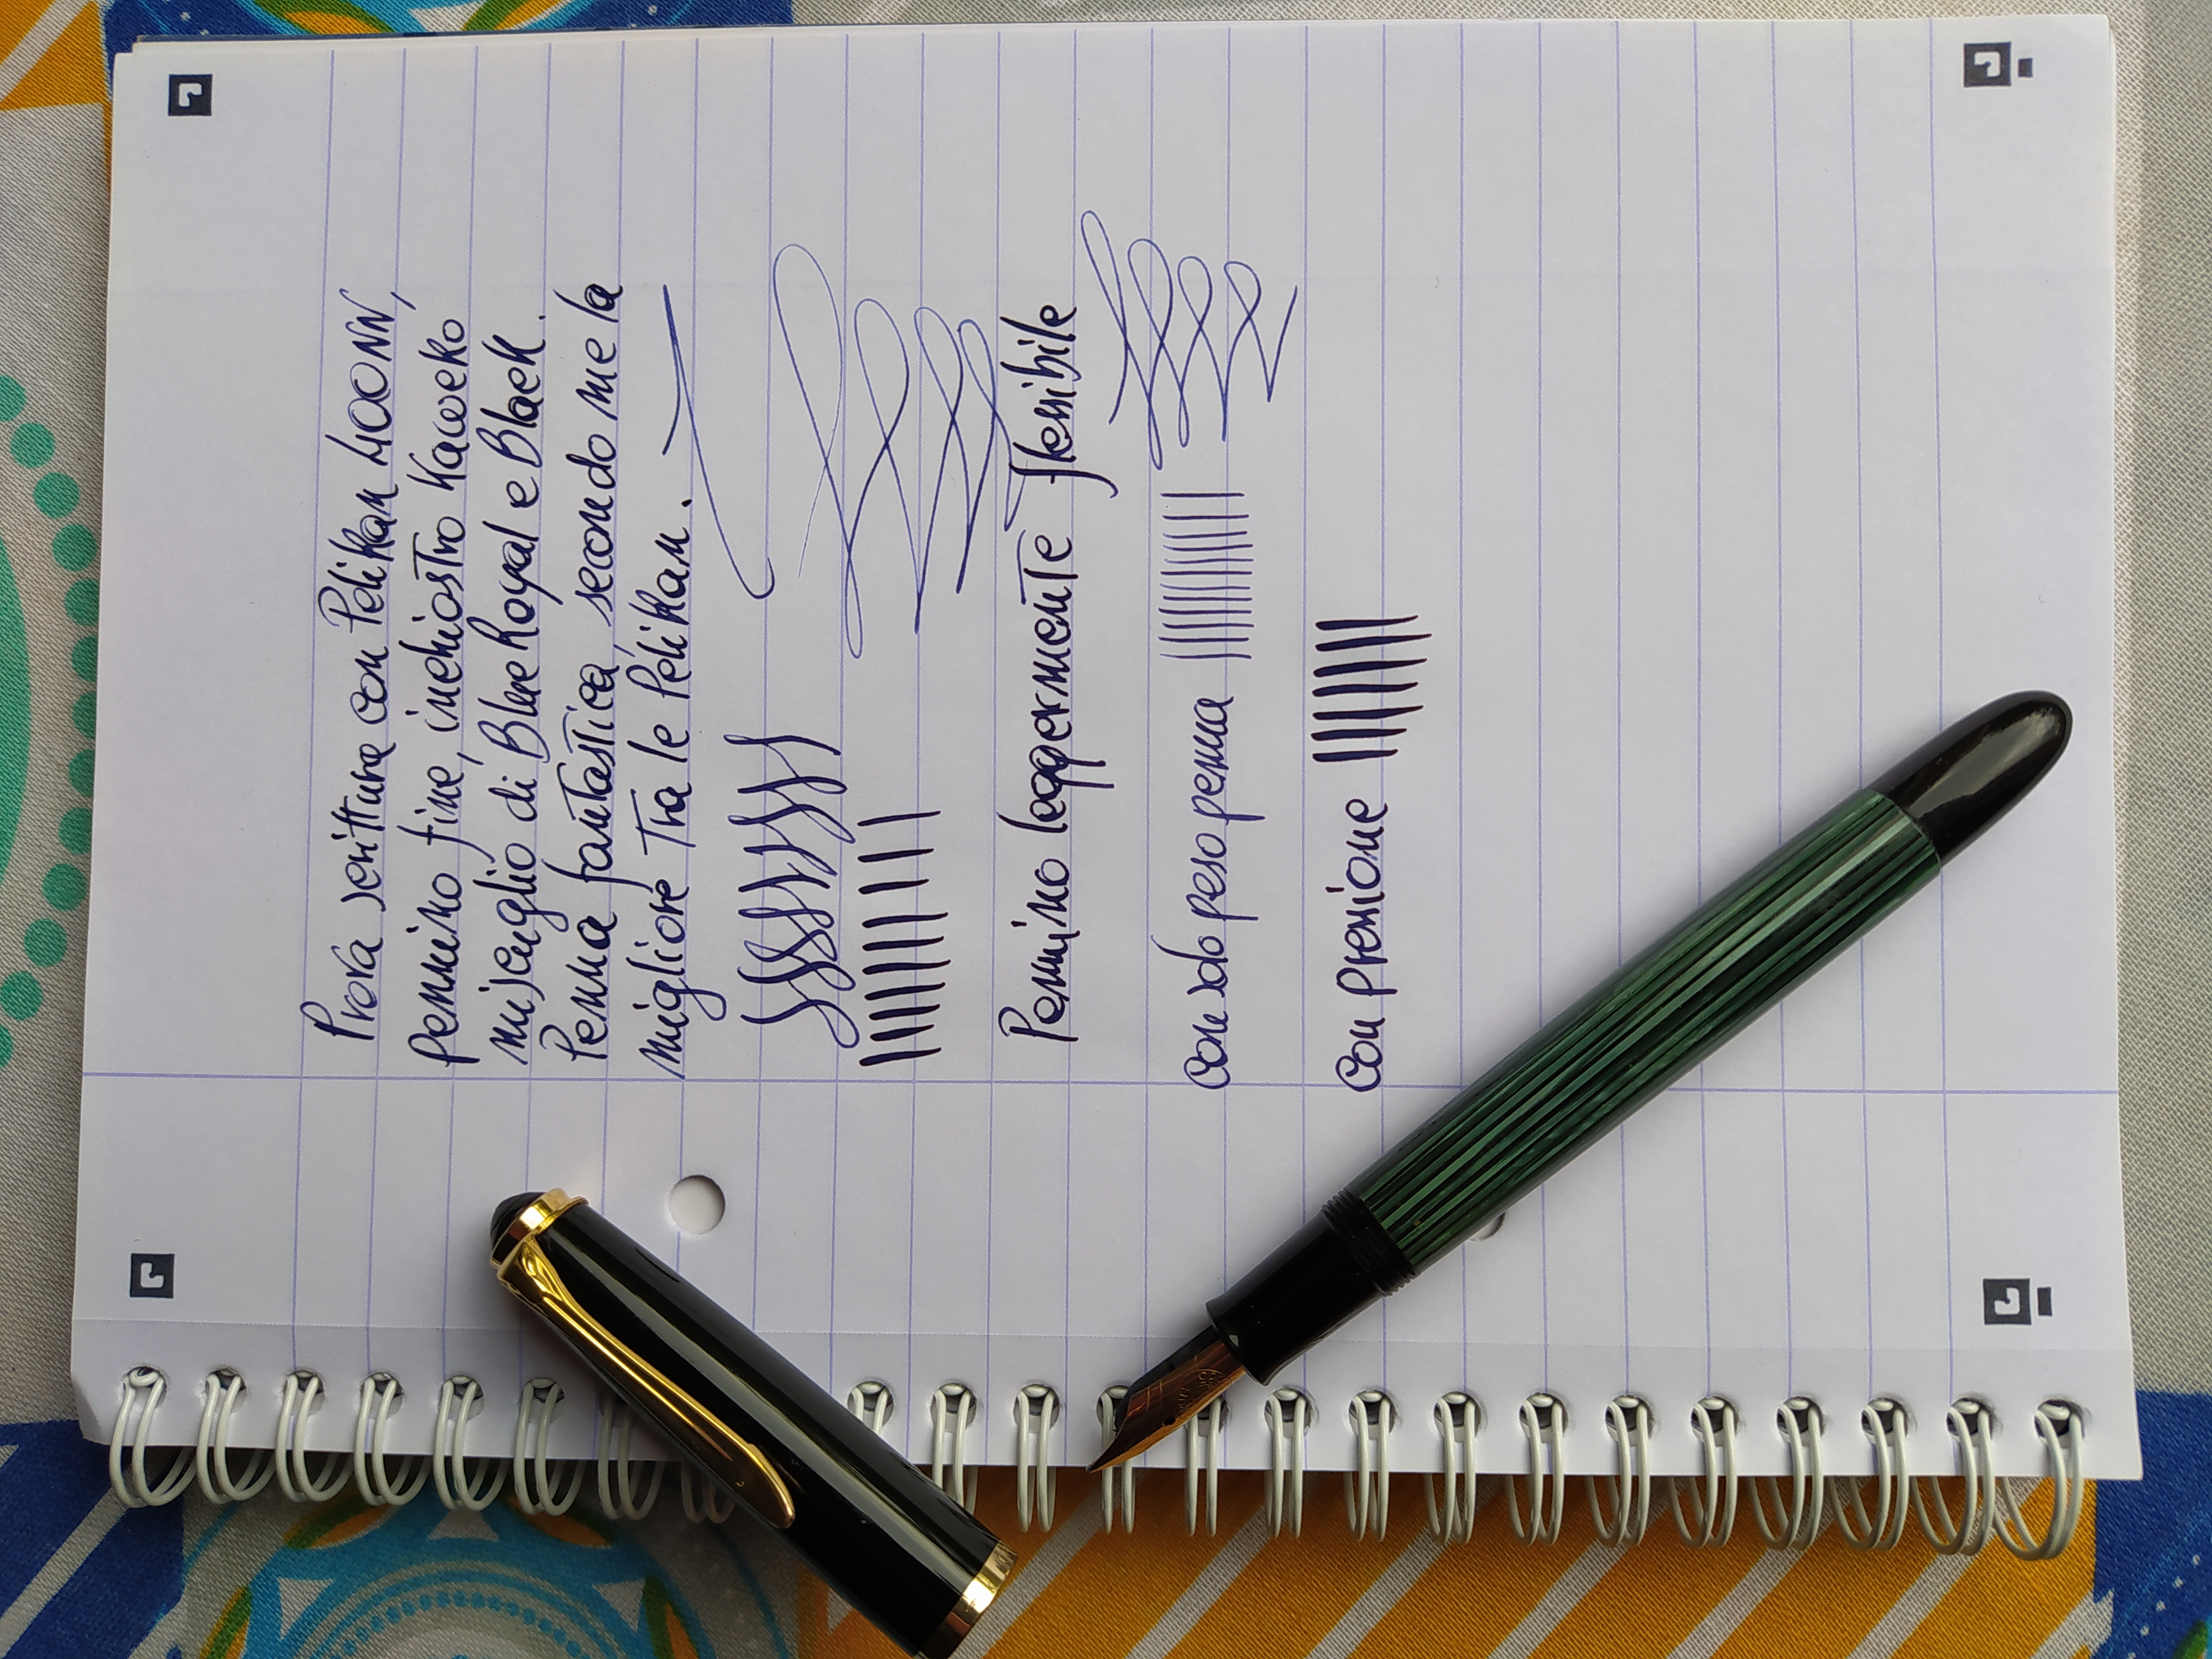 Prova scrittura con Pelikan 400NN,
pennino fine, inchiostro Kaweko
miscuglio di Blue Royal e Black.
Penna fantastica, secondo me la
migliore tra le Pelikan.
Pennino leggermente flessibile
con solo peso penna
con pressione